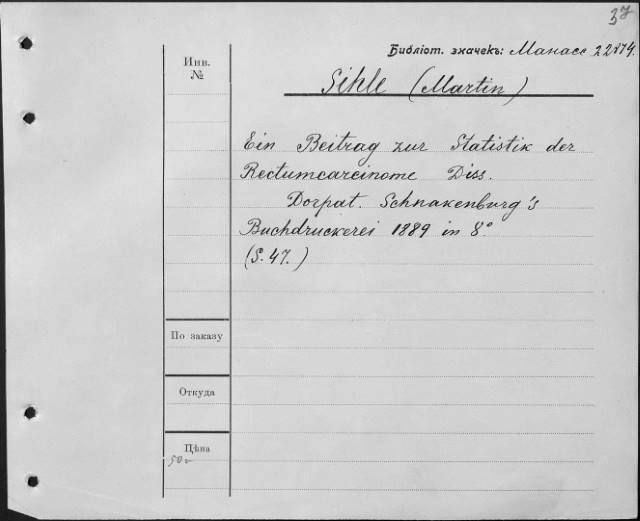 37
Библіот. значекъ: Манасс 22174.
Инв.
№
Sihle (Martin)
Ein Beitrag zur Statistik der
Rectumcarcinome Diss.
Dorpat. Schnakenburg's
Buchdruckerei 1889 in 8°
(S. 47.)
По заказу
Откуда
Цѣна